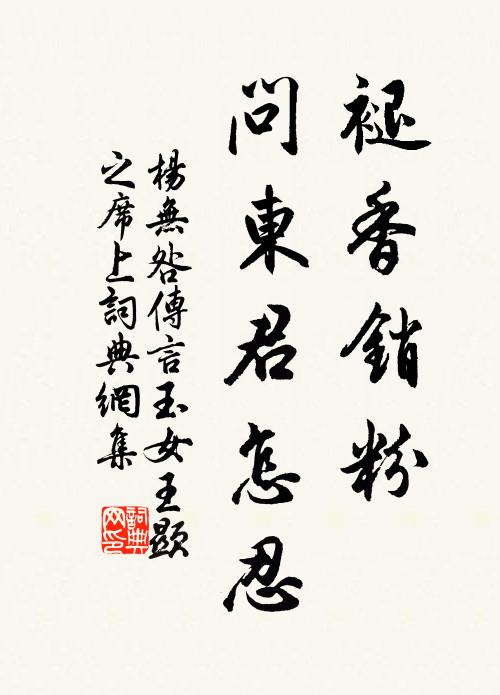 褪香銷粉
問東君怎忍
楊無咎傳言玉女王顯
之席上詞典網集
詞典
网印